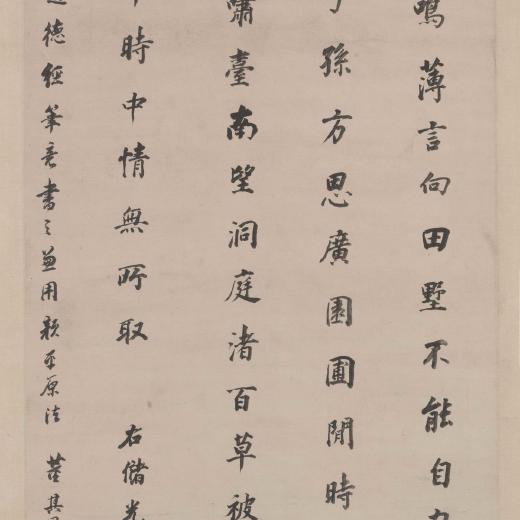 鳴薄言向田墅不能自
孫方思廣園圃閒時
嘯臺南望洞庭渚百草被
時中情無所取 右儲光
德經筆意書之兼用顏平原法 董其